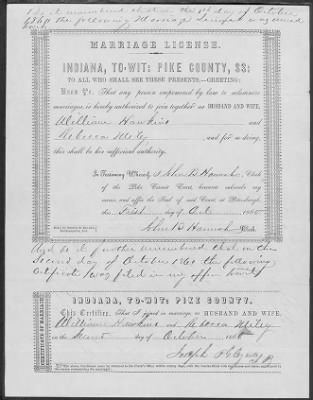 Be it remembered that on the 1st day of October
1860 the following Marriage License was issued
MARRIAGE LICENSE.
INDIANA, TO-WIT: PIKE COUNTY, SS:
TO ALL WHO SHALL SEE THESE PRESENTS,—GREETING:
Know Ye, That any person empowered by law to solemnize
marriages, is hereby authorized to join together as HUSBAND AND WIFE,
William Hawkins and
Rebecca and for so doing,
this shall be his sufficient authority.
In Testimony Whereof, I, John B Hannah, Clerk
of the Pike Circuit Court, hereunto subscribe my
name, and affix the Seal of said Court, at Petersburgh,
the First day of October 1860
John B Hannah Clerk.
And be it further remembered that on the
Second day of October 1860 the following
certificate was filed in my office
INDIANA, TO-WIT: PIKE COUNTY.
This Certifies, That I joined in marriage as HUSBAND AND WIFE,
William Hawkins and Rebecca
on the Second day of October 1860
Joseph